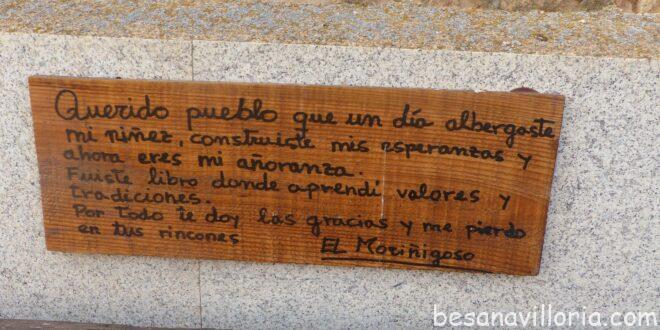 Querido pueblo que un día albergaste
mi niñez, construiste mis esperanzas y
ahora eres mi añoranza.
Fuiste libro donde aprendí valores y
tradiciones.
Por todo te doy las gracias y me pierdo
en tus rincones
EL Moriñigoso
besanavilloria.com